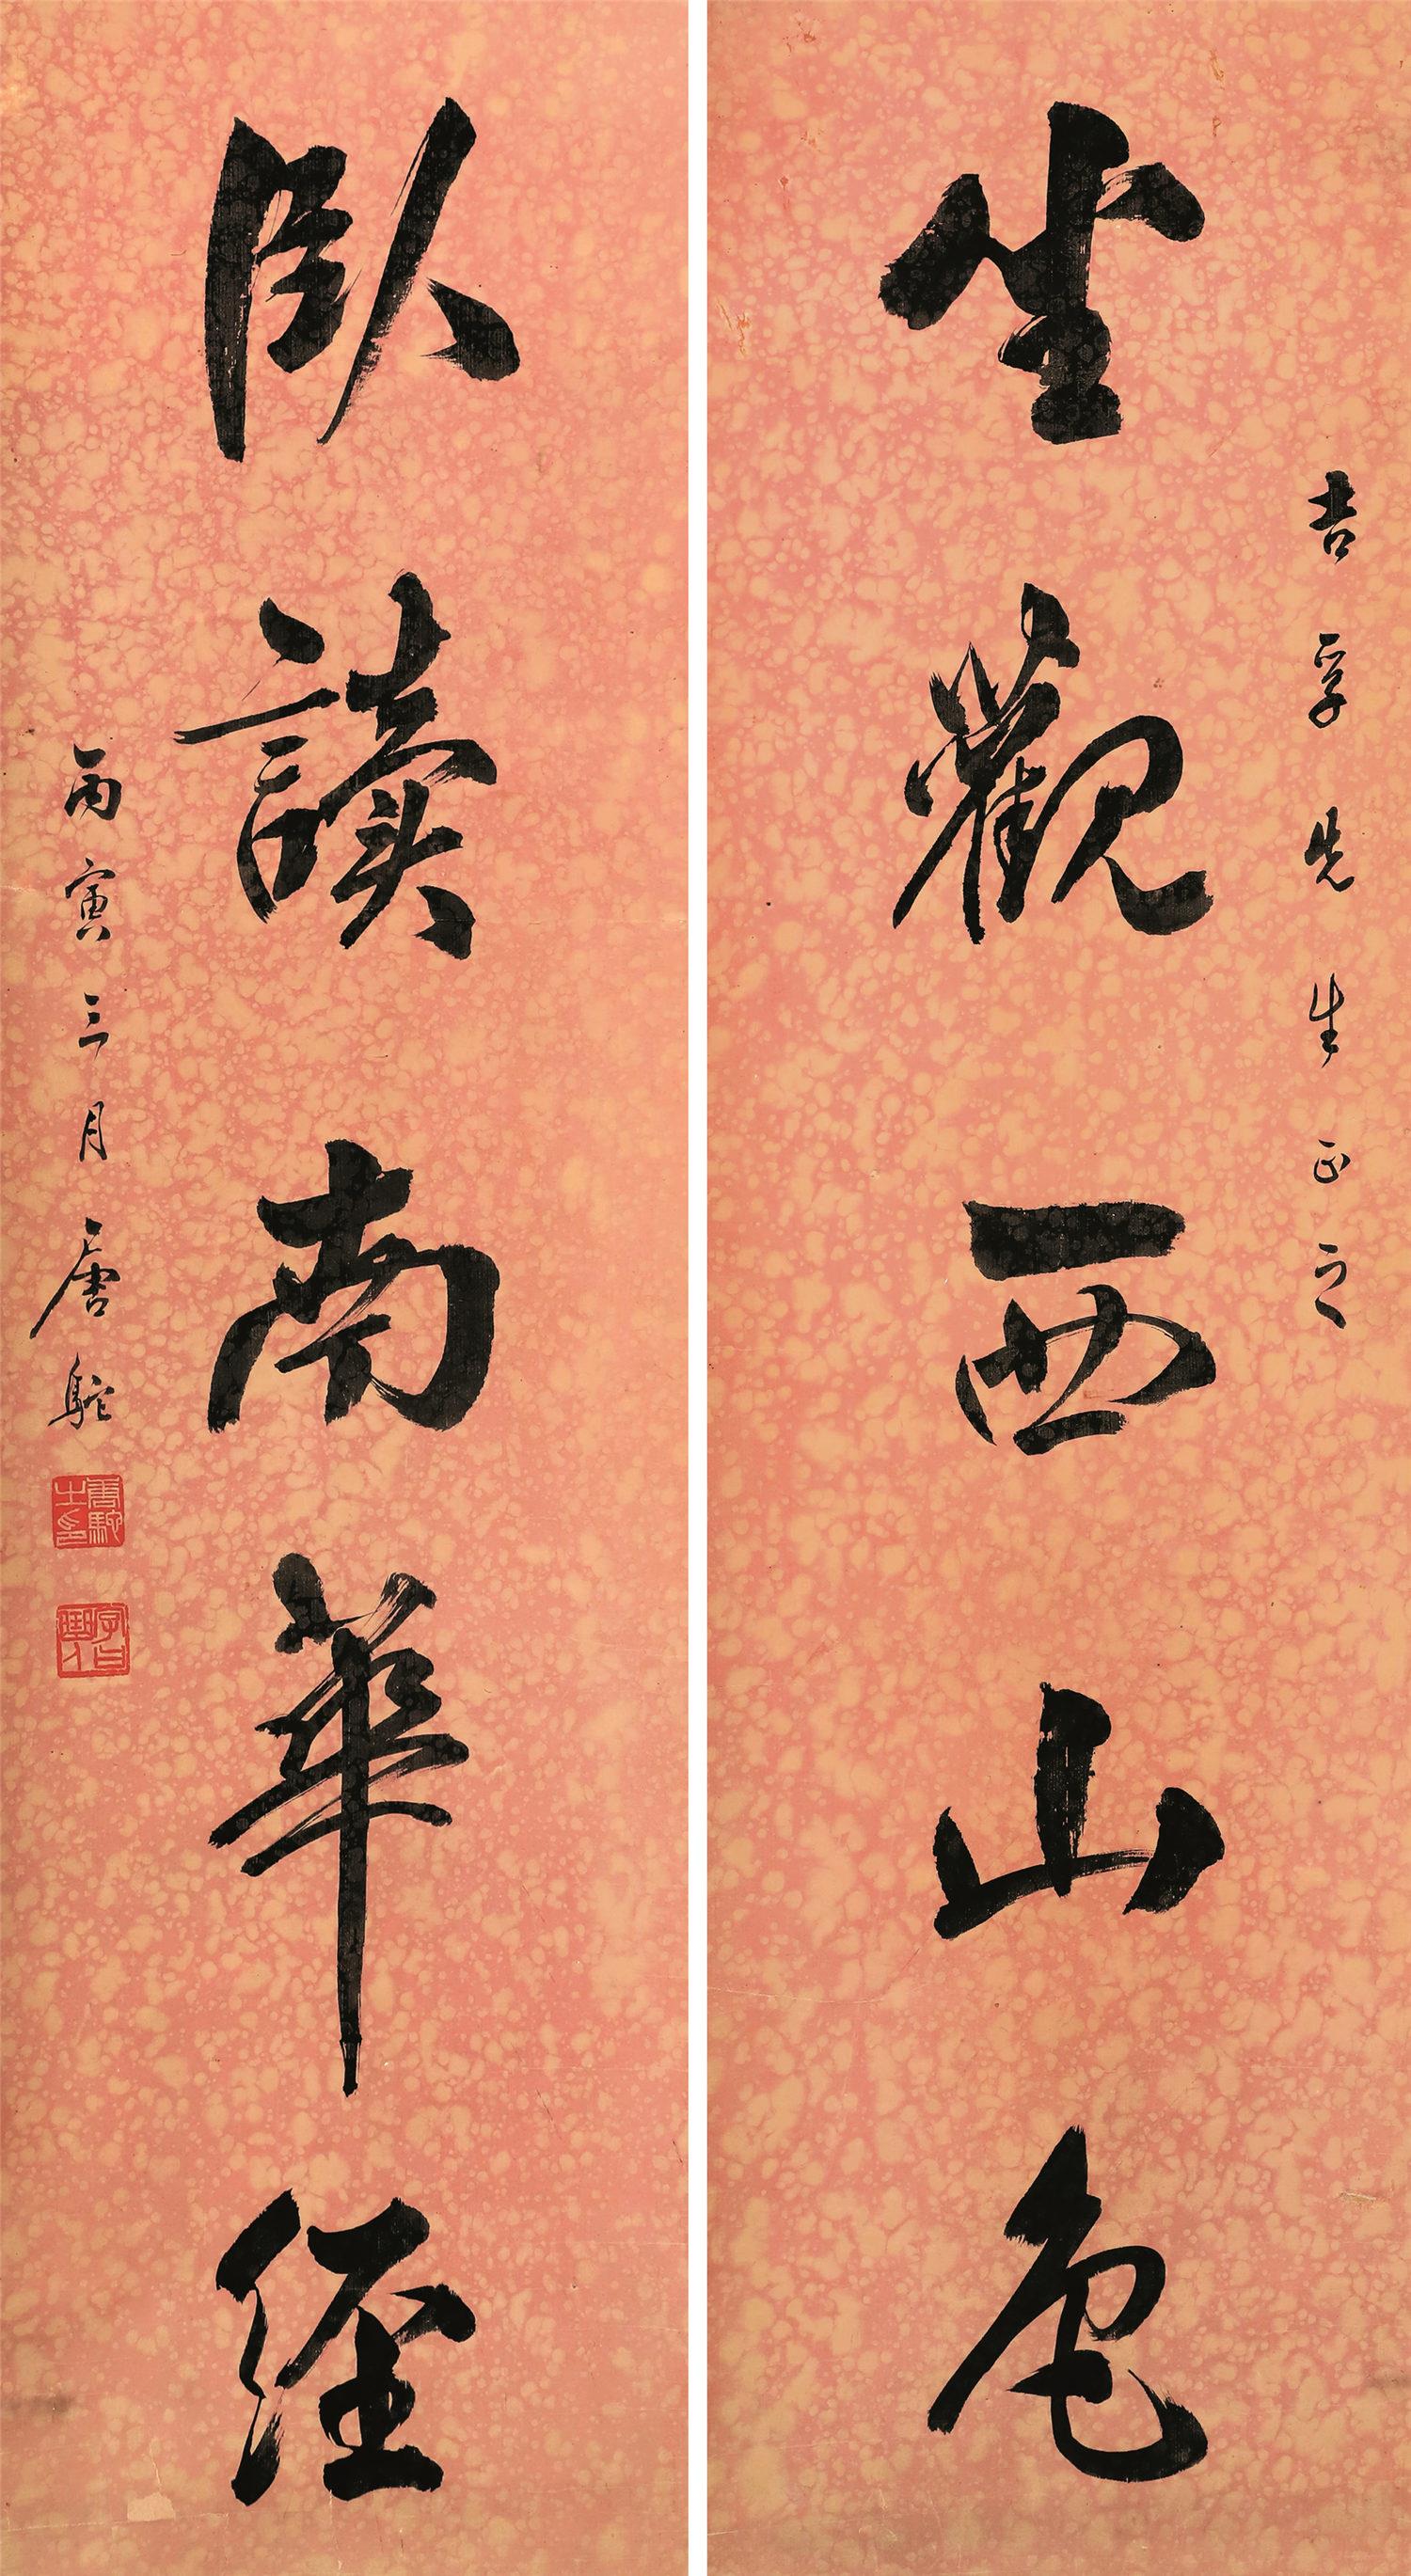 吉孚先生正之
坐觀西山色
臥讀南華經
丙寅三月唐駝
唐駝之印